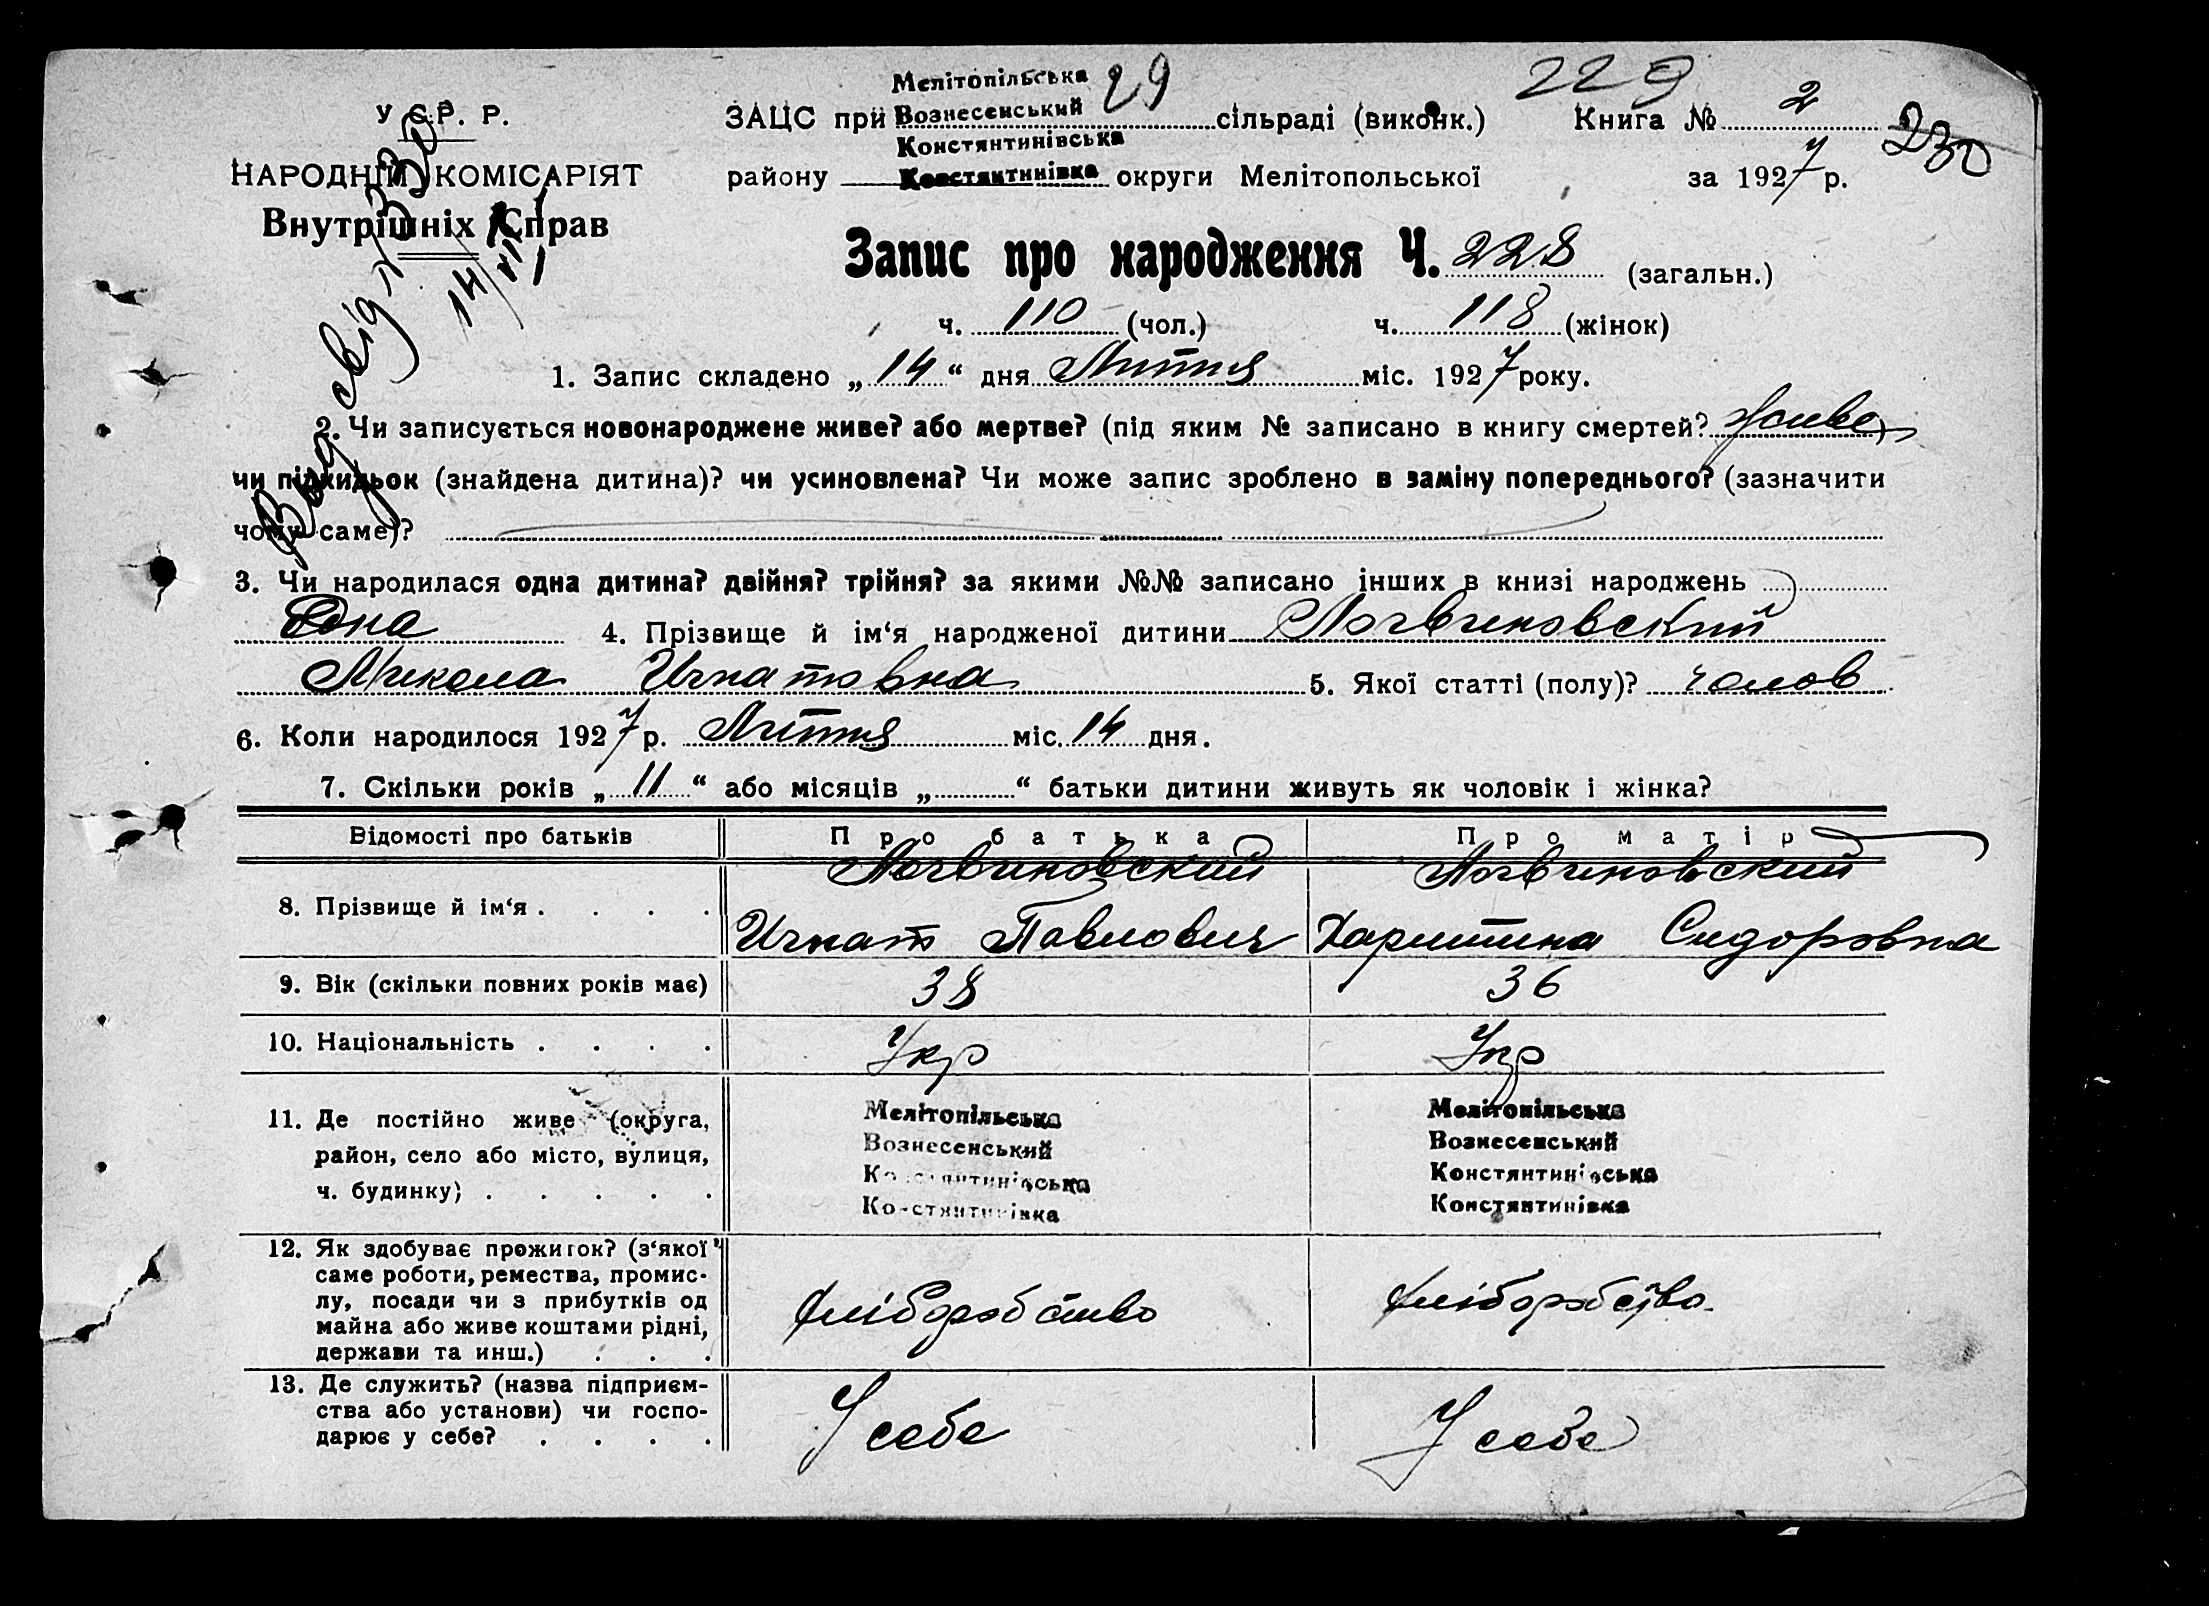 Мелітопільська 29 229
У С. Р. Р. ЗАЦС при Вознесенський сільраді (виконк.) Книга № 2 230
Констянтинівська
НАРОДНІЙ КОМІСАРІЯТ району Констянтинівка округи Мелітопольської за 1927 р.
Внутрішніх Справ
Запис про народження Ч. 228 (загальн.)
ч. 110 (чол.) ч. 118 (жінок)
Вид свід 14/VII
1. Запис складено „ 14 “ дня Липня міс. 1927 року.
2. Чи записується новонароджене живе? або мертве? (під яким № записано в книгу смертей? живе)
чи підкидьок (знайдена дитина)? чи усиновлена? Чи може запис зроблено в заміну попереднього? (зазначити
чому саме)?
3. Чи народилася одна дитина? двійня? трійня? за якими №№ записано інших в книзі народжень
Одна 4. Прізвище й ім‘я народженої дитини Логвиновский
Микола Игнатовна 5. Якої статті (полу)? чолов
6. Коли народилося 1927 р. Липня міс. 14 дня.
7. Скільки років „ 11 “ або місяців „ “ батьки дитини живуть як чоловік і жінка?
Відомості про батьків Про батька Про матір
Логвиновский Логвиновский
8. Прізвище й ім‘я . . . . Игнат Павлович Харитина Сидоровна
9. Вік (скільки повних років має) 38 36
10. Національність . . . . Укр Укр
11. Де постійно живе (округа, Мелітопільська Мелітопільська
район, село або місто, вулиця, Вознесенський Вознесенський
ч. будинку) . . . . . Констянтинівська Констянтинівська
Констянтинівка Констянтинівка
12. Як здобуває прожиток? (з‘якої
саме роботи, ремества, промис-
лу, посади чи з прибутків од хліборобство хліборобство
майна або живе коштами рідні,
держави та инш.) . . .
13. Де служить? (назва підприєм-
ства або установи) чи госпо-
дарює у себе? . . . . У себе У себе